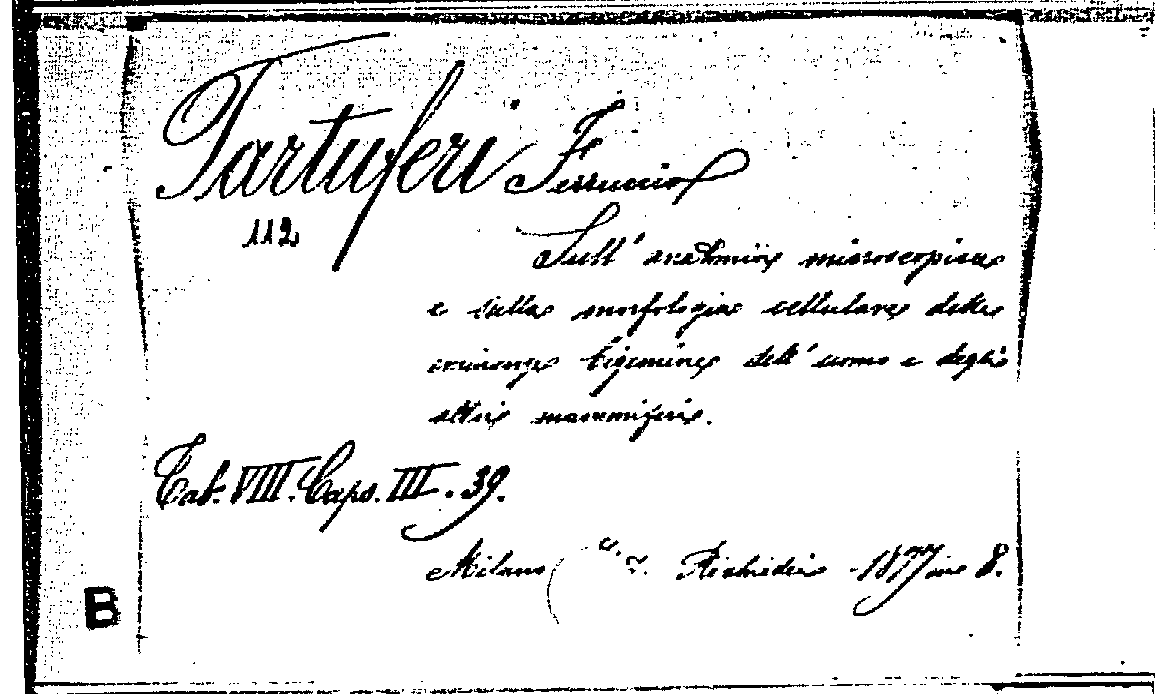 Tartuferi Ferruccio
112
Sull' anatomia microscopica
e sulla morfologia cellulare delle
eminenze bigemine dell' uomo e degli
altri mammiferi.
Tab. VIII. Caps. III. 39.
Milano Rechiedei 1877 in 8.
B